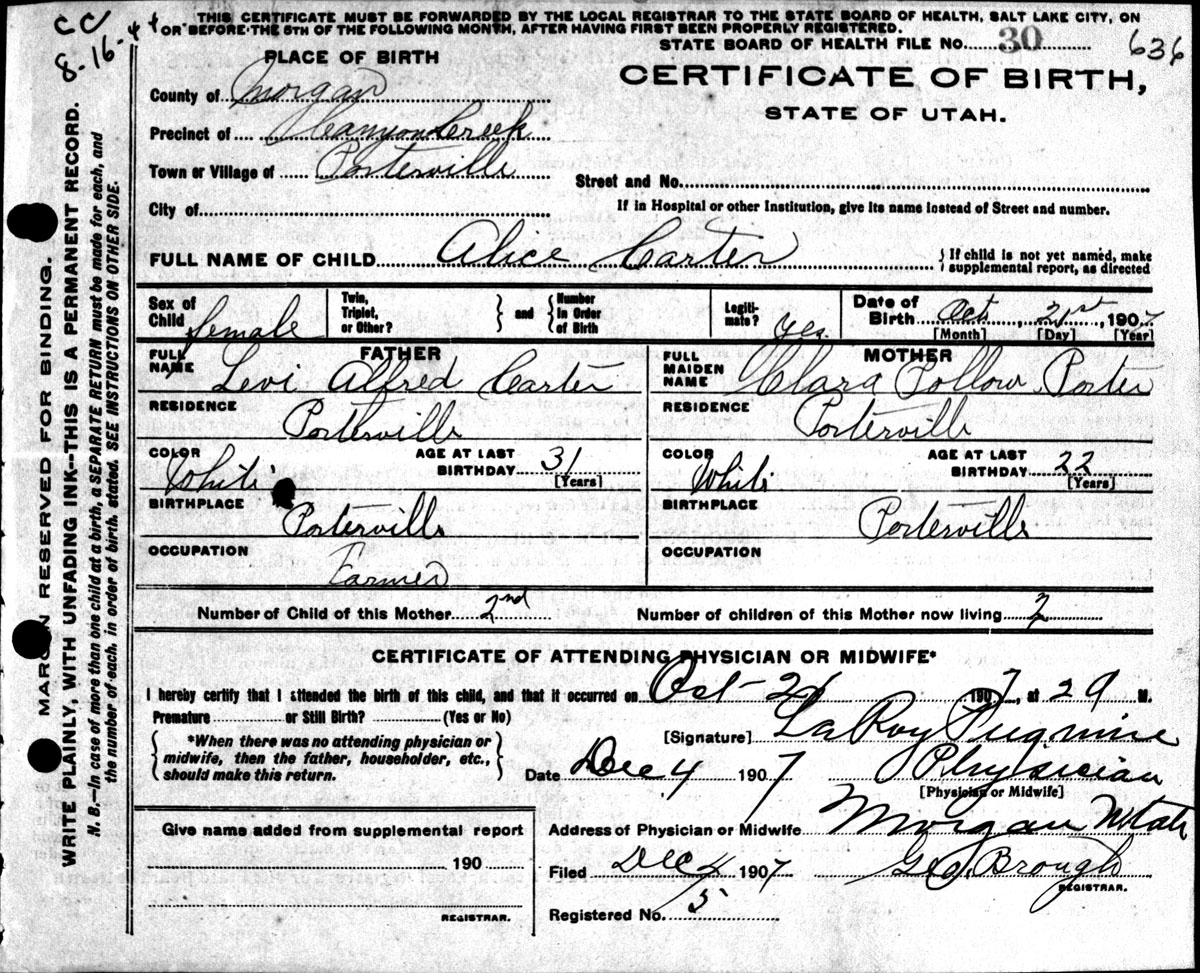 CC
8-16-44
THIS CERTIFICATE MUST BE FORWARDED BY THE LOCAL REGISTRAR TO THE STATE BOARD OF HEALTH, SALT LAKE CITY, ON
OR BEFORE THE 5TH OF THE FOLLOWING MONTH, AFTER HAVING FIRST BEEN PROPERLY REGISTERED.
STATE BOARD OF HEALTH FILE NO. 30
636
PLACE OF BIRTH
CERTIFICATE OF BIRTH,
STATE OF UTAH.
County of Morgan
Precinct of Canyon Creek
Town or Village of Porterville
Street and No.
City of
If in Hospital or other Institution, give its name instead of Street and number.
FULL NAME OF CHILD Alice Carter
{If child is not yet named, make
supplemental report, as directed
Sex of Child female
Twin, Triplet, or Other? } and { Number in Order of Birth
Legiti-mate? yes.
Date of Birth Oct 21st, 1907
[Month] [Day] [Year]
FATHER
FULL NAME Levi Alfred Carter
RESIDENCE Porterville
COLOR White AGE AT LAST BIRTHDAY 31
[Years]
BIRTHPLACE Porterville
OCCUPATION Farmer
MOTHER
FULL MAIDEN NAME Clara Porter
RESIDENCE Porterville
COLOR White AGE AT LAST BIRTHDAY 22
[Years]
BIRTHPLACE Porterville
OCCUPATION
Number of Child of this Mother 2nd Number of children of this Mother now living 2
CERTIFICATE OF ATTENDING PHYSICIAN OR MIDWIFE*
I hereby certify that I attended the birth of this child, and that it occurred on Oct-21 1907, at 29 M.
Premature or Still Birth? (Yes or No)
{*When there was no attending physician or
midwife, then the father, householder, etc.,
should make this return.}
[Signature] LaRoy Pugmire
Date Dec 4 1907 Physician
[Physician or Midwife]
Address of Physician or Midwife Morgan Utah
Filed Dec 4 1907 Geo. Brough
REGISTRAR.
Registered No. 5
Give name added from supplemental report
190
REGISTRAR.
MARGIN RESERVED FOR BINDING.
WRITE PLAINLY, WITH UNFADING INK—THIS IS A PERMANENT RECORD.
N. B.—In case of more than one child at a birth, a SEPARATE RETURN must be made for each, and
the number of each, in order of birth, stated. SEE INSTRUCTIONS ON OTHER SIDE.